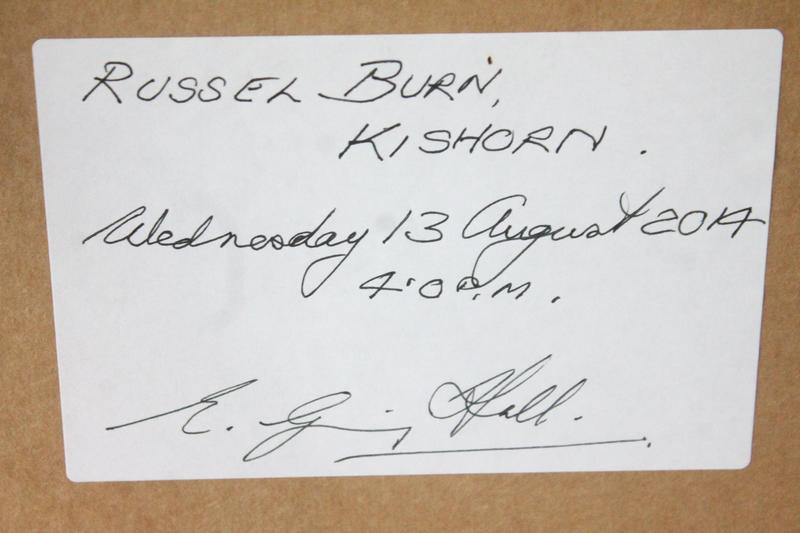 RUSSEL BURN,
KISHORN.
Wednesday 13 August 2014
4.0 P.M.
E. Hall.